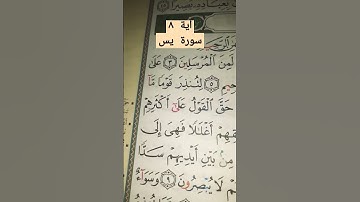 آية ٨
سورة يس
بِعِبَادِهِ
لَمِنَ ٱلْمُرْسَلِينَ ٣ عَلَىٰ
٥ لِتُنذِرَ قَوْمًا مَّآ
حَقَّ ٱلْقَوْلُ عَلَىٰٓ أَكْثَرِهِمْ
أَغْلَٰلًا فَهِىَ إِلَى
مِنۢ بَيْنِ أَيْدِيهِمْ سَدًّا
لَا يُبْصِرُونَ ٩ وَسَوَآءٌ